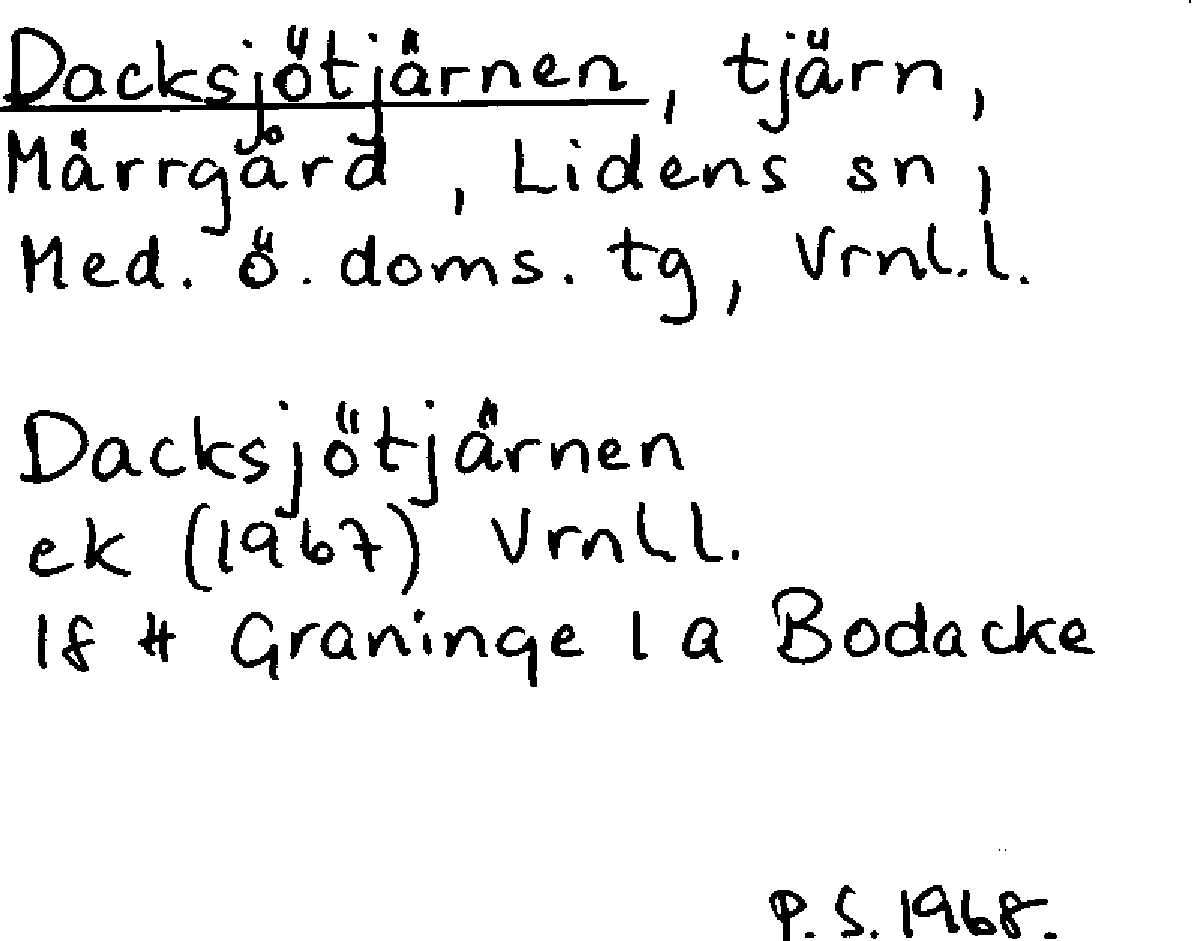 Dacksjötjärnen, tjärn,
Märrgård, Lidens sn,
Med. ö. doms. tg, Vrnl.l.
Dacksjötjärnen
ek (1967) Vrnl l.
18 H Graninge 1 a Bodacke
P.S. 1968.